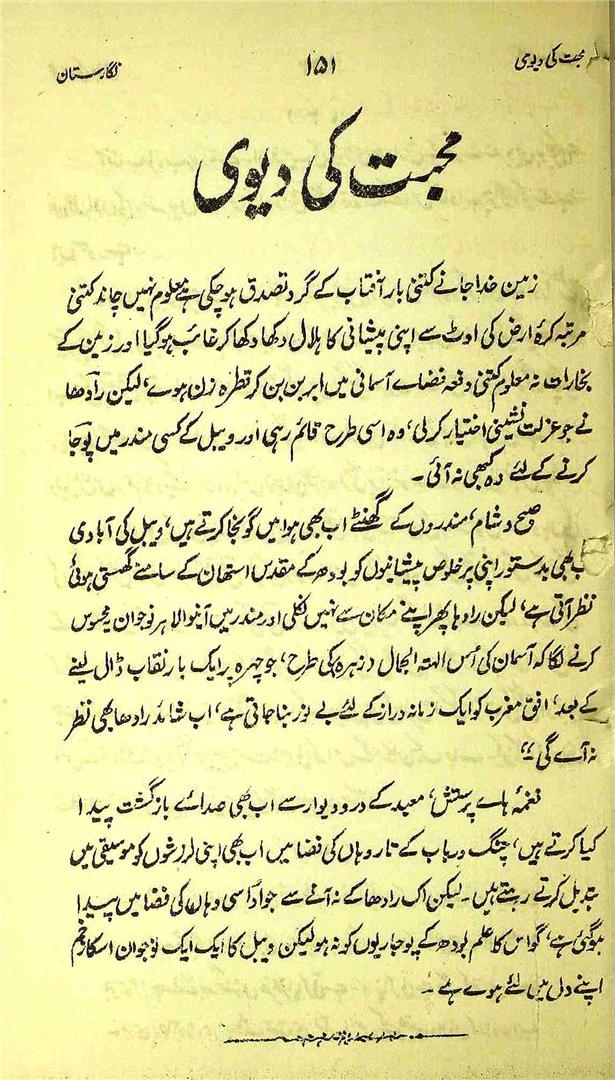 محبت کی دیوی ۱۵۱ نگارستان
محبت کی دیوی
زمین خدا جانے کتنی بار آفتاب کے گرد تصدق ہو چکی ہے معلوم نہیں چاند کتنی
مرتبہ کرۂ ارض کی اوٹ سے اپنی پیشانی کا ہلال دکھا دکھا کر غائب ہو گیا اور زمین کے
بخارات نہ معلوم کتنی دفعہ فضاے آسمانی میں ابر بن بن کر قطرہ زن ہوے، لیکن رادھا
نے جو عزلت نشینی اختیار کر لی، وہ اسی طرح قائم رہی اور ویبل کے کسی مندر میں پوجا
کرنے کے لئے وہ کبھی نہ آئی۔
صبح و شام، مندروں کے گھنٹے اب بھی ہوا میں گونجا کرتے ہیں، ویبل کی آبادی
اب بھی بدستور اپنی پر خلوص پیشانیوں کو بودھ کے مقدس استھان کے سامنے گھستی ہوئی
نظر آتی ہے، لیکن رادہا پھر اپنے مکان سے نہیں نکلی اور مندر میں آنیوالا ہر نوجوان یہ محسوس
کرنے لگا کہ آسمان کی اُس الہتہ الجمال (زہرہ) کی طرح، جو چہرہ پر ایک بار نقاب ڈال لینے
کے بعد، افق مغرب کو ایک زمانہ دراز کے لئے بے نور بنا جاتی ہے، اب شائد رادھا بھی نظر
نہ آے گی"
نغمۂ ہاے پرستش، معبد کے در و دیوار سے اب بھی صداے بازگشت پیدا
کیا کرتے ہیں، چنگ و رباب کے تار وہاں کی فضا میں اب بھی اپنی لرزشوں کو موسیقی میں
تبدیل کرتے رہتے ہیں۔ لیکن اک رادھا کے نہ آنے سے جو اُداسی وہاں کی فضا میں پیدا
ہو گئی ہے، گو اس کا علم بودھ کے پوجاریوں کو نہ ہو لیکن ویبل کا ایک ایک نوجوان اسکا زخم
اپنے دل میں لئے ہوے ہے۔